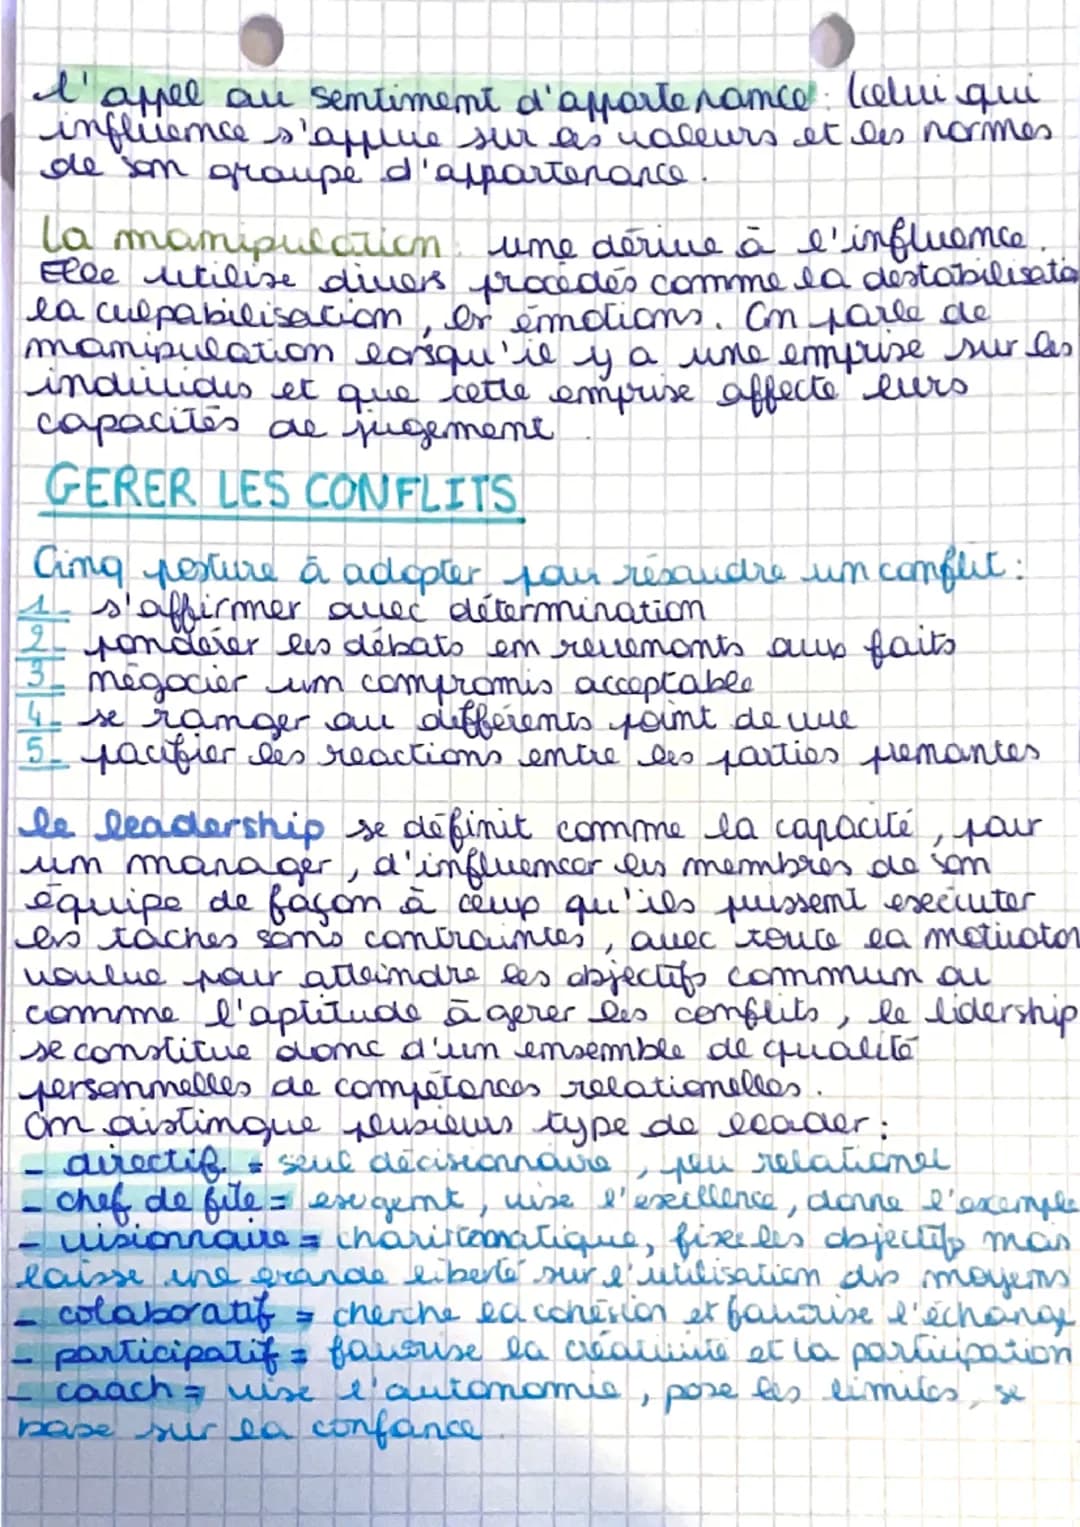 l'appel au sentiment d'appartenance : (celui qui
influence s'appuie sur les valeurs et les normes
de son groupe d'appartenance.
La manipulation : une dérive à l'influence.
Elle utilise divers procédés comme la destabilisatio
la culpabilisation, les émotions. On parle de
manipulation lorsqu'il y a une emprise sur les
individus et que cette emprise affecte leurs
capacités de jugement.
GERER LES CONFLITS
Cinq posture à adopter pour résoudre un conflit :
1_ s'affirmer avec détermination
2_ pondérer les débats en revenants aux faits
3_ négocier un compromis acceptable
4_ se ranger au différents point de vue
5_ pacifier les reactions entre les parties prenantes
le leadership se définit comme la capacité, pour
un manager, d'influencer les membres de son
équipe de façon à ceux qu'ils puissent executer
les taches sans contraintes, avec toute la motivation
voulue pour atteindre les objectifs commun ou
comme l'aptitude à gerer les conflits, le lidership
se constitue donc d'un ensemble de qualité
personnelles de compétences relationelles.
On distingue plusieurs type de leader :
- directif = seul décisionnaire, peu relationel
- chef de file = exigent, vise l'excillence, donne l'exemple
- visionnaire = charistomatique, fixe les objectifs mais
laisse une grande liberté sur l'utilisation des moyens
- colaboratif = cherche la cohésion et favorise l'échange
- participatif = favorise la créativité et la participation
- coach = vise l'autonomie, pose les limites, se
base sur la confance